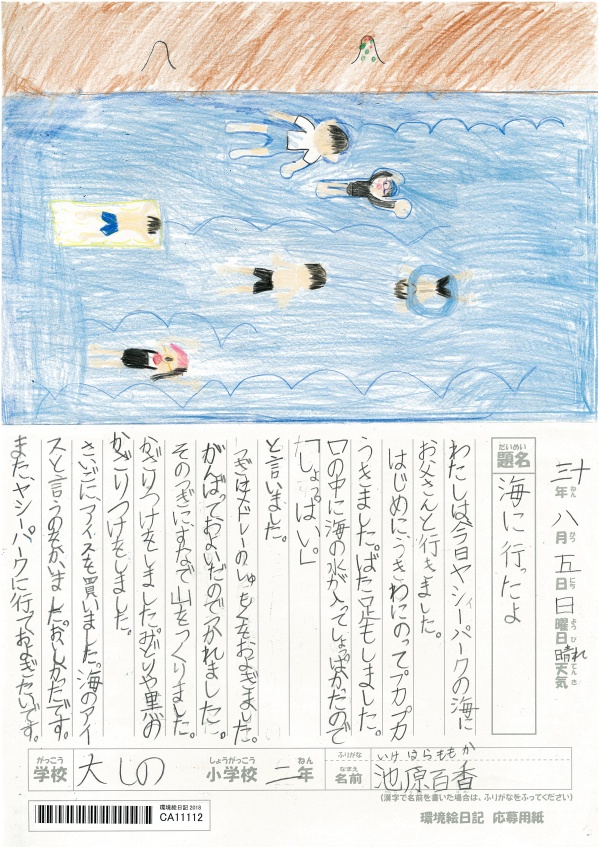 三十年八月五日日曜日晴れ天気
ねん
がつ
にち
ようび
てんき
だいめい
題名
海に行ったよ
わたしは今日ヤシィーパークの海に
お父さんと行きました。
はじめにうきわにのってプカプカ
うきました。ばた足もしました。
口の中に海の水が入ってしょっぱかったので
「しょっぱい。」
と言いました。
つぎはメドレーのしゅもくをおよぎました。
がんばっておよいだのでつかれました。
そのつぎにすなで山をつくりました。
かざりつけをしました。みどりや黒いの
かざりつけをしました。
さいごに、アイスを買いました。海のアイ
スと言うのをかいました。おいしかったです。
また、ヤシーパークに行っておよぎたいです。
がっこう
学校
大しの
しょうがっこう
小学校
ねん
二年
ふりがな
いけはらももか
なまえ
名前
池原百香
(漢字で名前を書いた場合は、ふりがなをふってください)
環境絵日記 2018
CA11112
環境絵日記 応募用紙